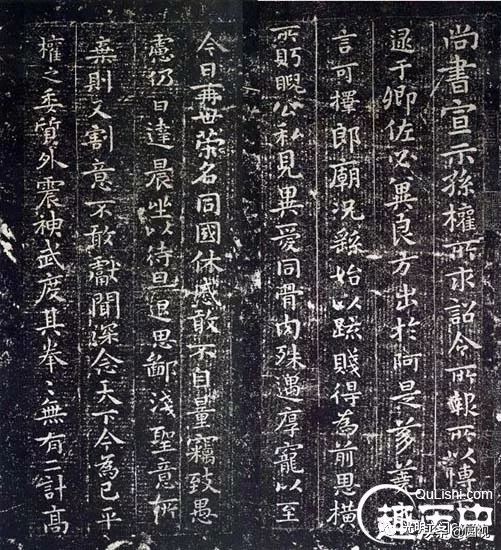 尚書宣示孫權所求詔令所報所以博
逮于卿佐必異良方出於阿是芻蕘
言可擇郎廟況繇始以疏賤得為前恩橫
所眄睨公私見異愛同骨肉殊遇厚寵以至
今日再世榮名同國休慼敢不自量竊致愚
慮仍日達晨坐以待旦退思鄙淺聖意所
棄則又割意不敢獻聞深念天下今為已平
權之委質外震神武度其拳〻無有二計高
QuLishi.com